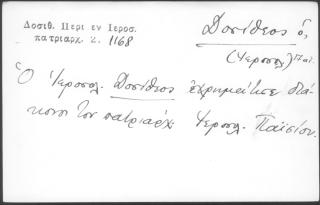 Δοσιθ. Περι εν Ιεροσ.
πατριαρχ. 2. 1168
Δοσίθεος ὁ,
(Ἱεροσολ)
Ὁ Ἱεροσολ. Δοσίθεος ἐχρημάτισε διά-
κονος τοῦ πατριάρχ. Ἱεροσολ. Παϊσίου.